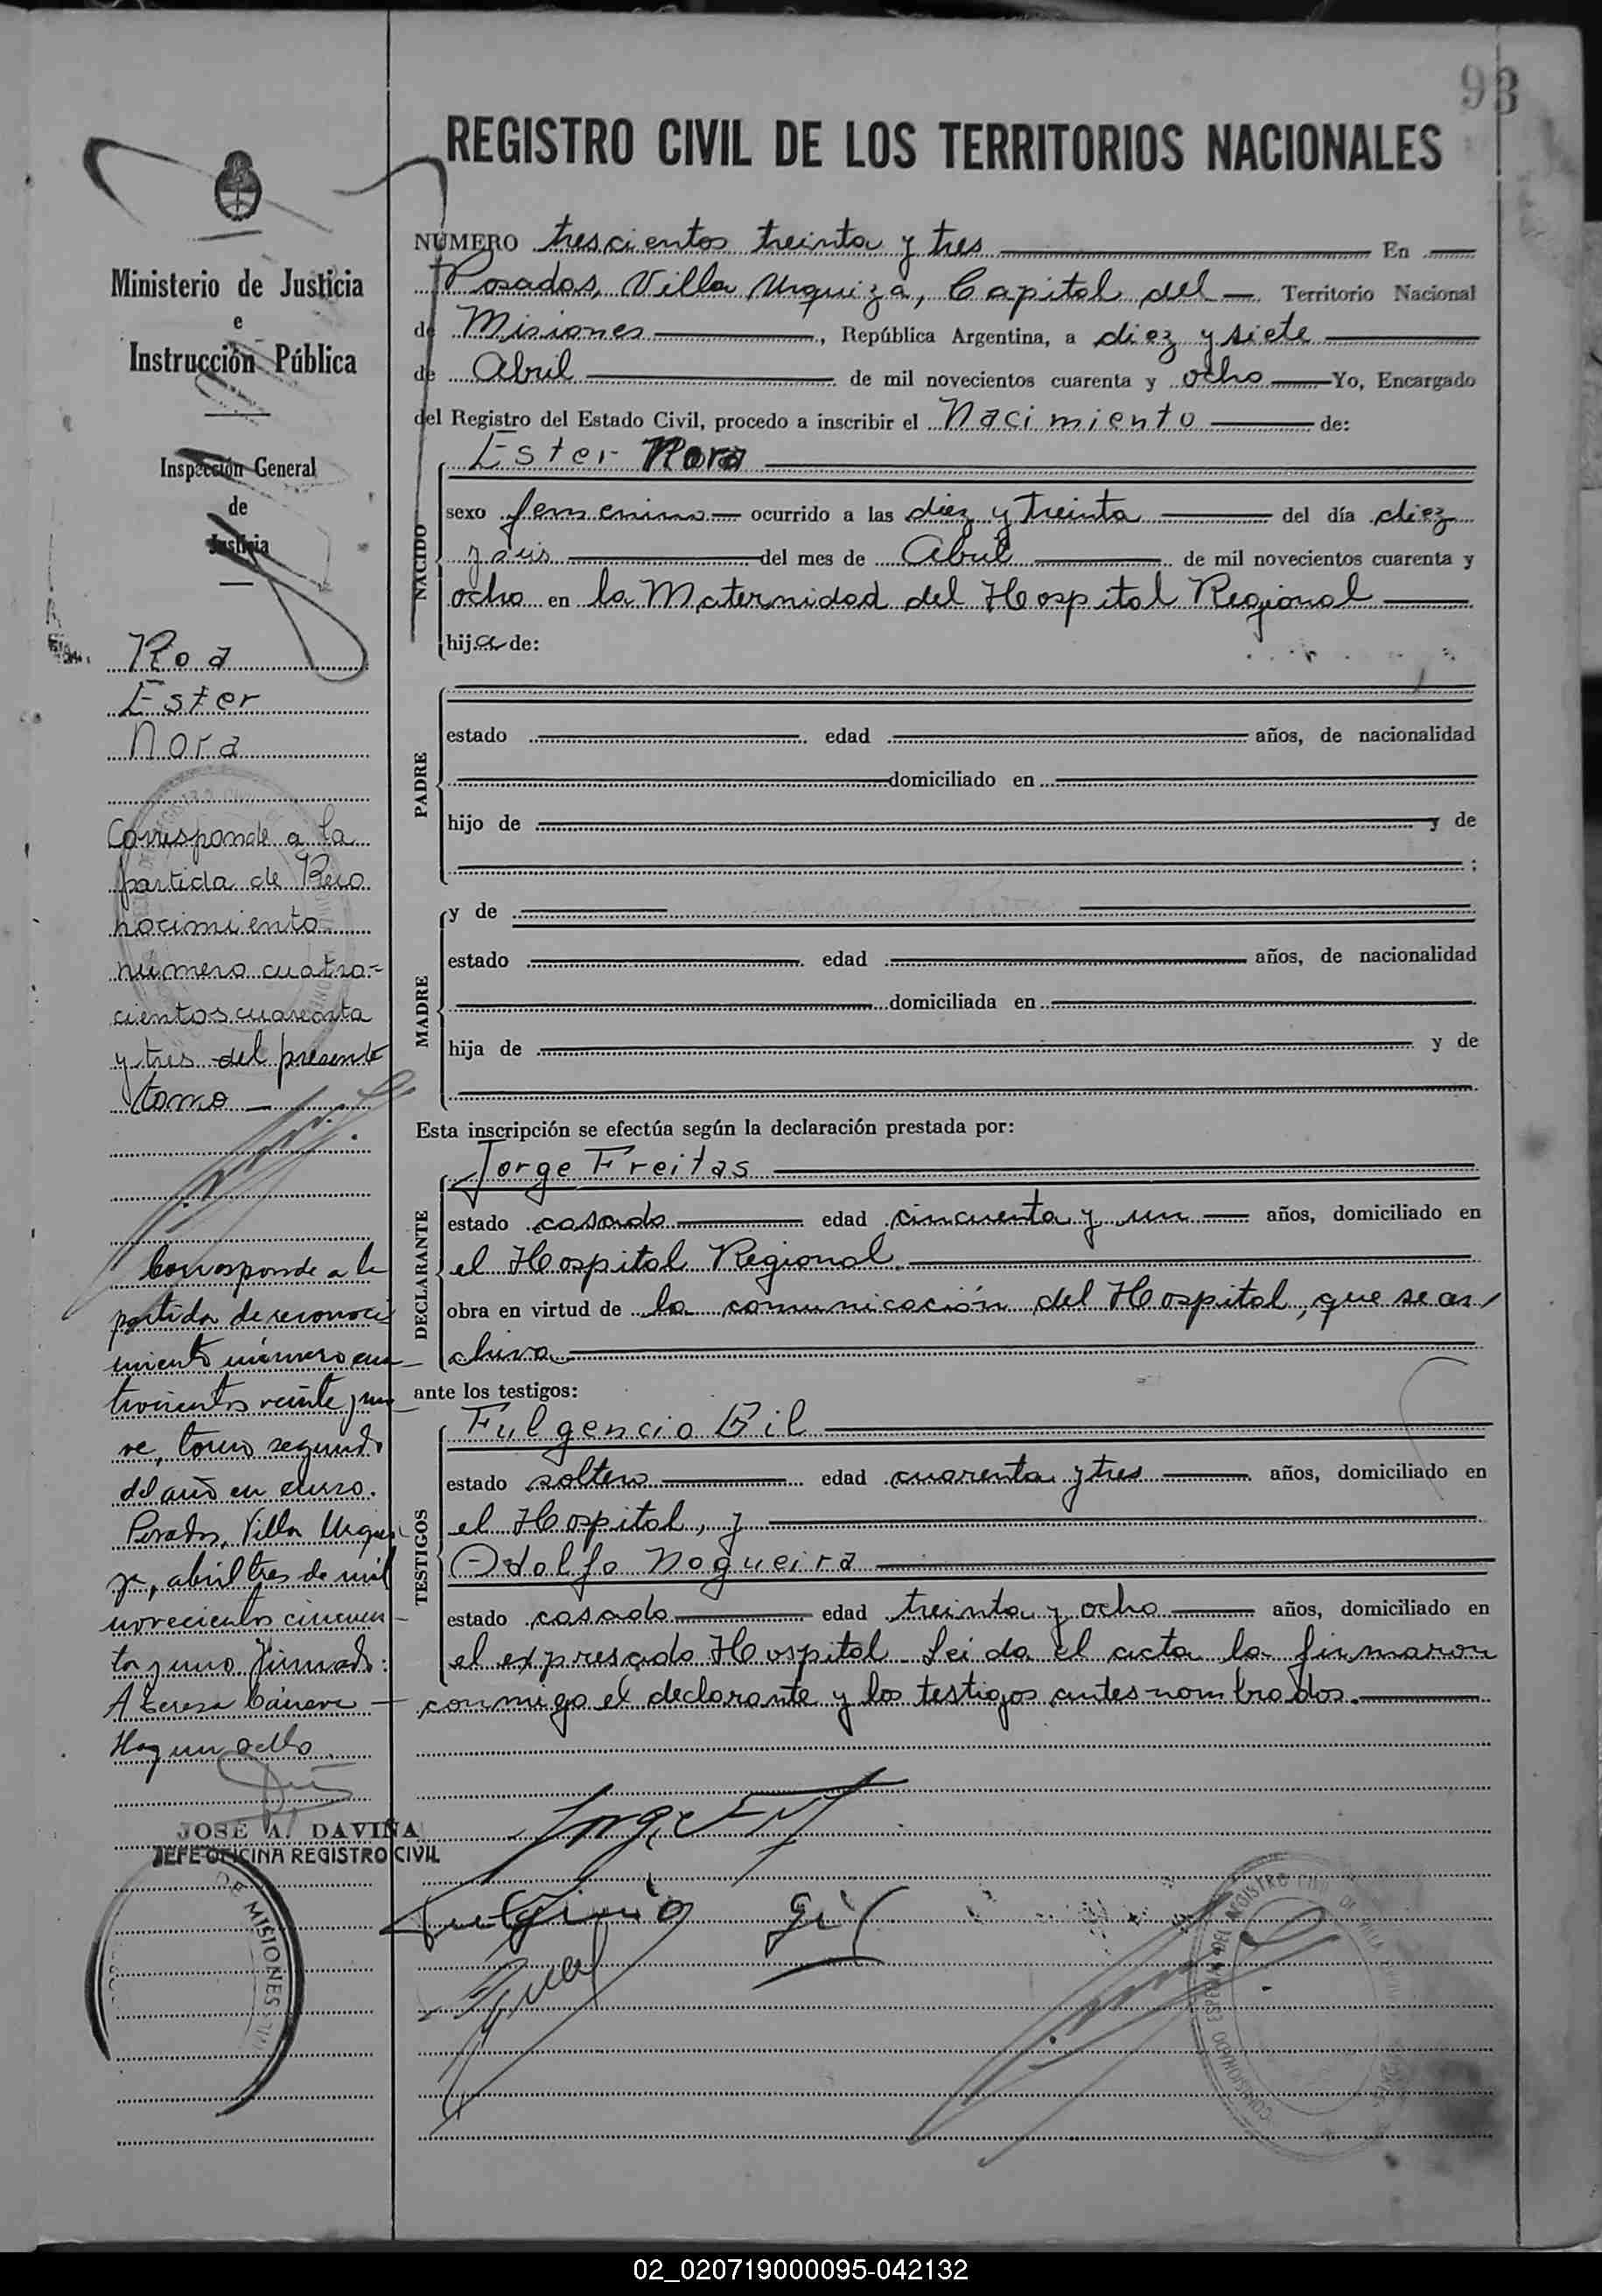 93
REGISTRO CIVIL DE LOS TERRITORIOS NACIONALES
Ministerio de Justicia
e
Instrucción Pública
Inspección General
de
Justicia
Roa
Ester
Nora
Corresponde a la
partida de Reco
nocimiento
número cuatro-
cientos cuarenta
y tres del presente
tomo
Corresponde a la
partida de reconoci
miento número cua
trocientos veinte y nue
ve, tomo segundo
del año en curso.
Posadas, Villa Urqui
za, abril tres de mil
novecientos cincuen
ta y uno Firmado:
A Teresa
Hay un sello
JOSÉ A. DAVIÑA
JEFE OFICINA REGISTRO CIVIL
DE MISIONES
NÚMERO trescientos treinta y tres En
Posadas, Villa Urquiza, Capital del Territorio Nacional
de Misiones, República Argentina, a diez y siete
de Abril de mil novecientos cuarenta y ocho Yo, Encargado
del Registro del Estado Civil, procedo a inscribir el Nacimiento de:
NACIDO
Ester Nora
sexo femenino ocurrido a las diez y treinta del día diez
y seis del mes de Abril de mil novecientos cuarenta y
ocho en la Maternidad del Hospital Regional
hija de:
PADRE
estado edad años, de nacionalidad
domiciliado en
hijo de y de
;
MADRE
y de
estado edad años, de nacionalidad
domiciliada en
hija de y de
Esta inscripción se efectúa según la declaración prestada por:
DECLARANTE
Jorge Freitas
estado casado edad cincuenta y un años, domiciliado en
el Hospital Regional.
obra en virtud de la comunicación del Hospital, que se ar
chiva
ante los testigos:
TESTIGOS
Fulgencio Gil
estado soltero edad cuarenta y tres años, domiciliado en
el Hospital, y
Odolfo Nogueira
estado casado edad treinta y ocho años, domiciliado en
el expresado Hospital. Leida el acta la firmaron
conmigo el declarante y los testigos antes nombrados.
Fulgencio Gil
02_020719000095-042132